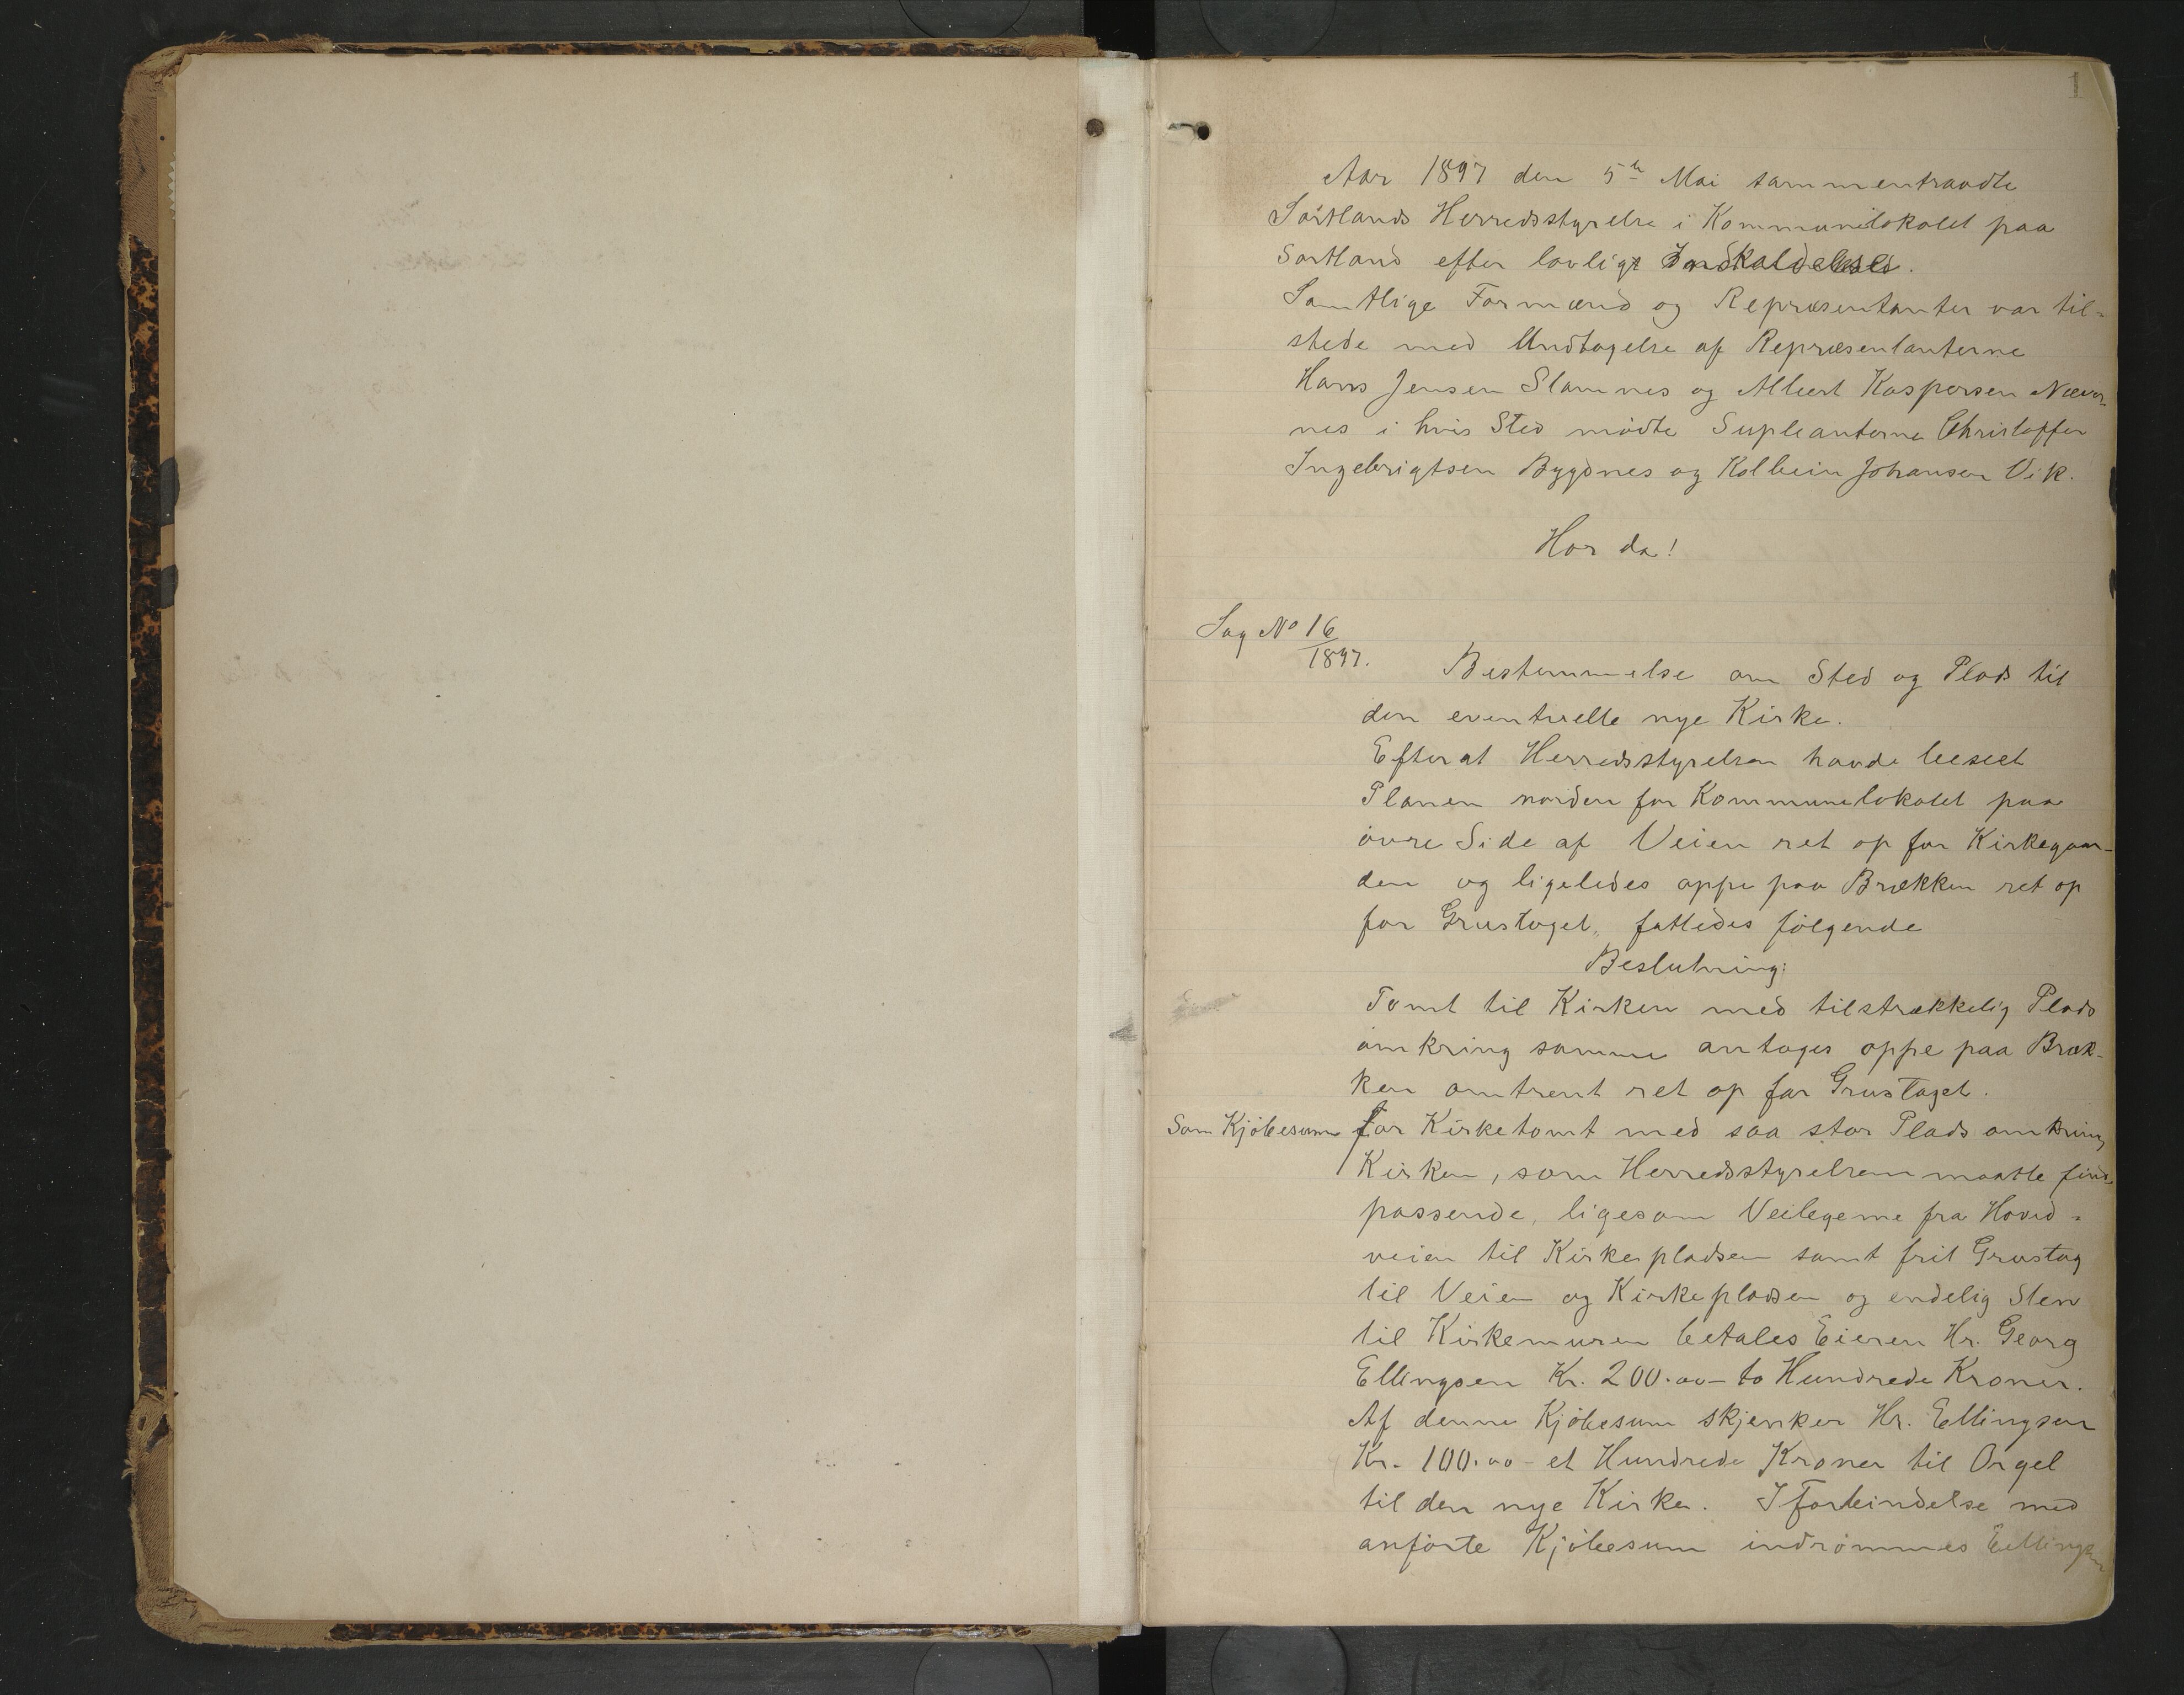 1
Aar 1897 den 5te Mai sammentraadte
Sortlands Herredsstyrelse i Kommunelokalet paa
Sortland efter lovligt Indkaldelse.
Samtlige Formænd og Repræsentanter var til-
stede med Undtagelse af Repræsentanterne
Hans Jensen Slamnes og Albert Kaspersen Næver-
nes i hvis Sted mødte Supleanterne Christoffer
Ingebrigtsen Bygdnes og Kolbein Johansen Vik.
Hor da!
Sag No 16/1897.
Bestemmelse om Sted og Plads til
den eventuelle nye Kirke.
Efterat Herredsstyrelsen havde beseet
Planen norden for Kommunelokalet paa
øvre Side af Veien ret op for Kirkegaar-
den og ligeledes oppe paa Brækken ret op
for Grustaget, fattedes følgende
Beslutning:
Tomt til Kirken med tilstrækkelig Plads
omkring samme antages oppe paa Bræk-
ken omtrent ret op for Grustaget.
Som Kjøbesum for Kirketomt med saa stor Plads omkring
Kirken, som Herredsstyrelsen maatte finde
passende, ligesom Veilegeme fra Hoved-
veien til Kirkepladsen samt frit Grustag
til Veien og Kirkepladsen og endelig Sten
til Kirkemuren betales Eieren Hr. Georg
Ellingsen Kr. 200.00 - to Hundrede Kroner.
Af denne Kjøbesum skjenker Hr. Ellingsen
Kr. 100.00 - et Hundrede Kroner til Orgel
til den nye Kirke. I Forbindelse med
anførte Kjøbesum indrømmes Ellingsen